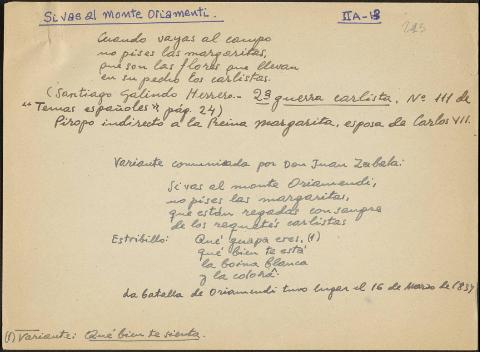 Si vas al monte Oriamendi.
II A-13
213
Cuando vayas al campo
no pises las margaritas,
que son las flores que llevan
en su pecho los carlistas.
(Santiago Galindo Herrero.- 2ª guerra carlista, Nº 111 de
"Temas españoles", pág. 24)
Piropo indirecto a la Reina Margarita, esposa de Carlos VII.
Variante comunicada por Don Juan Zabala:
Si vas al monte Oriamendi,
no pises las margaritas,
que están regadas con sangre
de los requetés carlistas
Estribillo: Qué guapa eres, (1)
qué bien te está
la boina blanca
y la colorá.
La batalla de Oriamendi tuvo lugar el 16 de Marzo de 1837
(1) Variante: Qué bien te sienta.